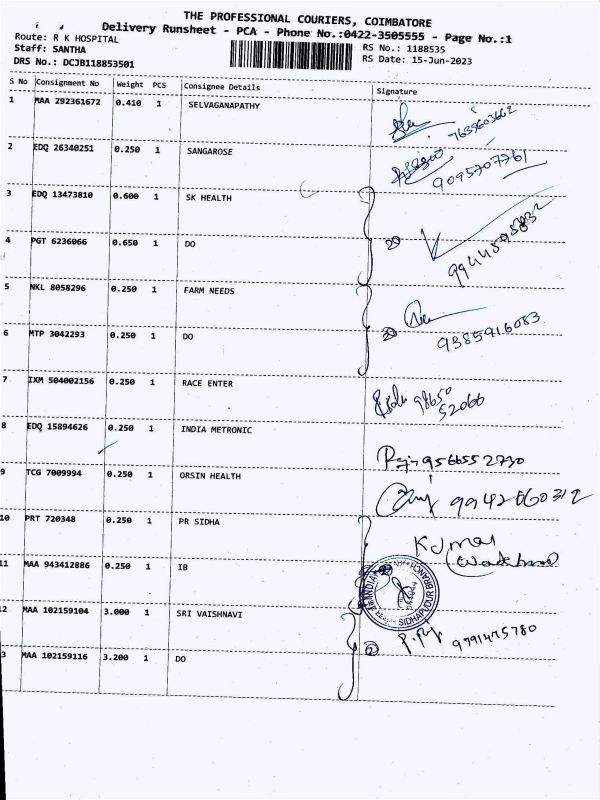 THE PROFESSIONAL COURIERS, COIMBATORE
Delivery Runsheet - PCA - Phone No.:0422-3505555 - Page No.:1
Route: R K HOSPITAL
RS No.: 1188535
Staff: SANTHA
RS Date: 15-Jun-2023
DRS No.: DCJB118853501
S No Consignment No Weight PCS Consignee Details Signature
1 MAA 292361672 0.410 1 SELVAGANAPATHY
2 EDQ 26340251 0.250 1 SANGAROSE
9095707761
3 EDQ 13473810 0.600 1 SK HEALTH
4 PGT 6236066 0.650 1 DO
5 NKL 8058296 0.250 1 FARM NEEDS
9385916083
6 MTP 3042293 0.250 1 DO
7 IXM 504002156 0.250 1 RACE ENTER
98650
52066
8 EDQ 15894626 0.250 1 INDIA METRONIC
9566552730
9 TCG 7009994 0.250 1 ORSIN HEALTH
9942060312
10 PRT 720348 0.250 1 PR SIDHA
Kumar
11 MAA 943412886 0.250 1 IB
INDIAN
SIDHAPUDUR BRANCH
12 MAA 102159104 3.000 1 SRI VAISHNAVI
9791475780
3 MAA 102159116 3.200 1 DO